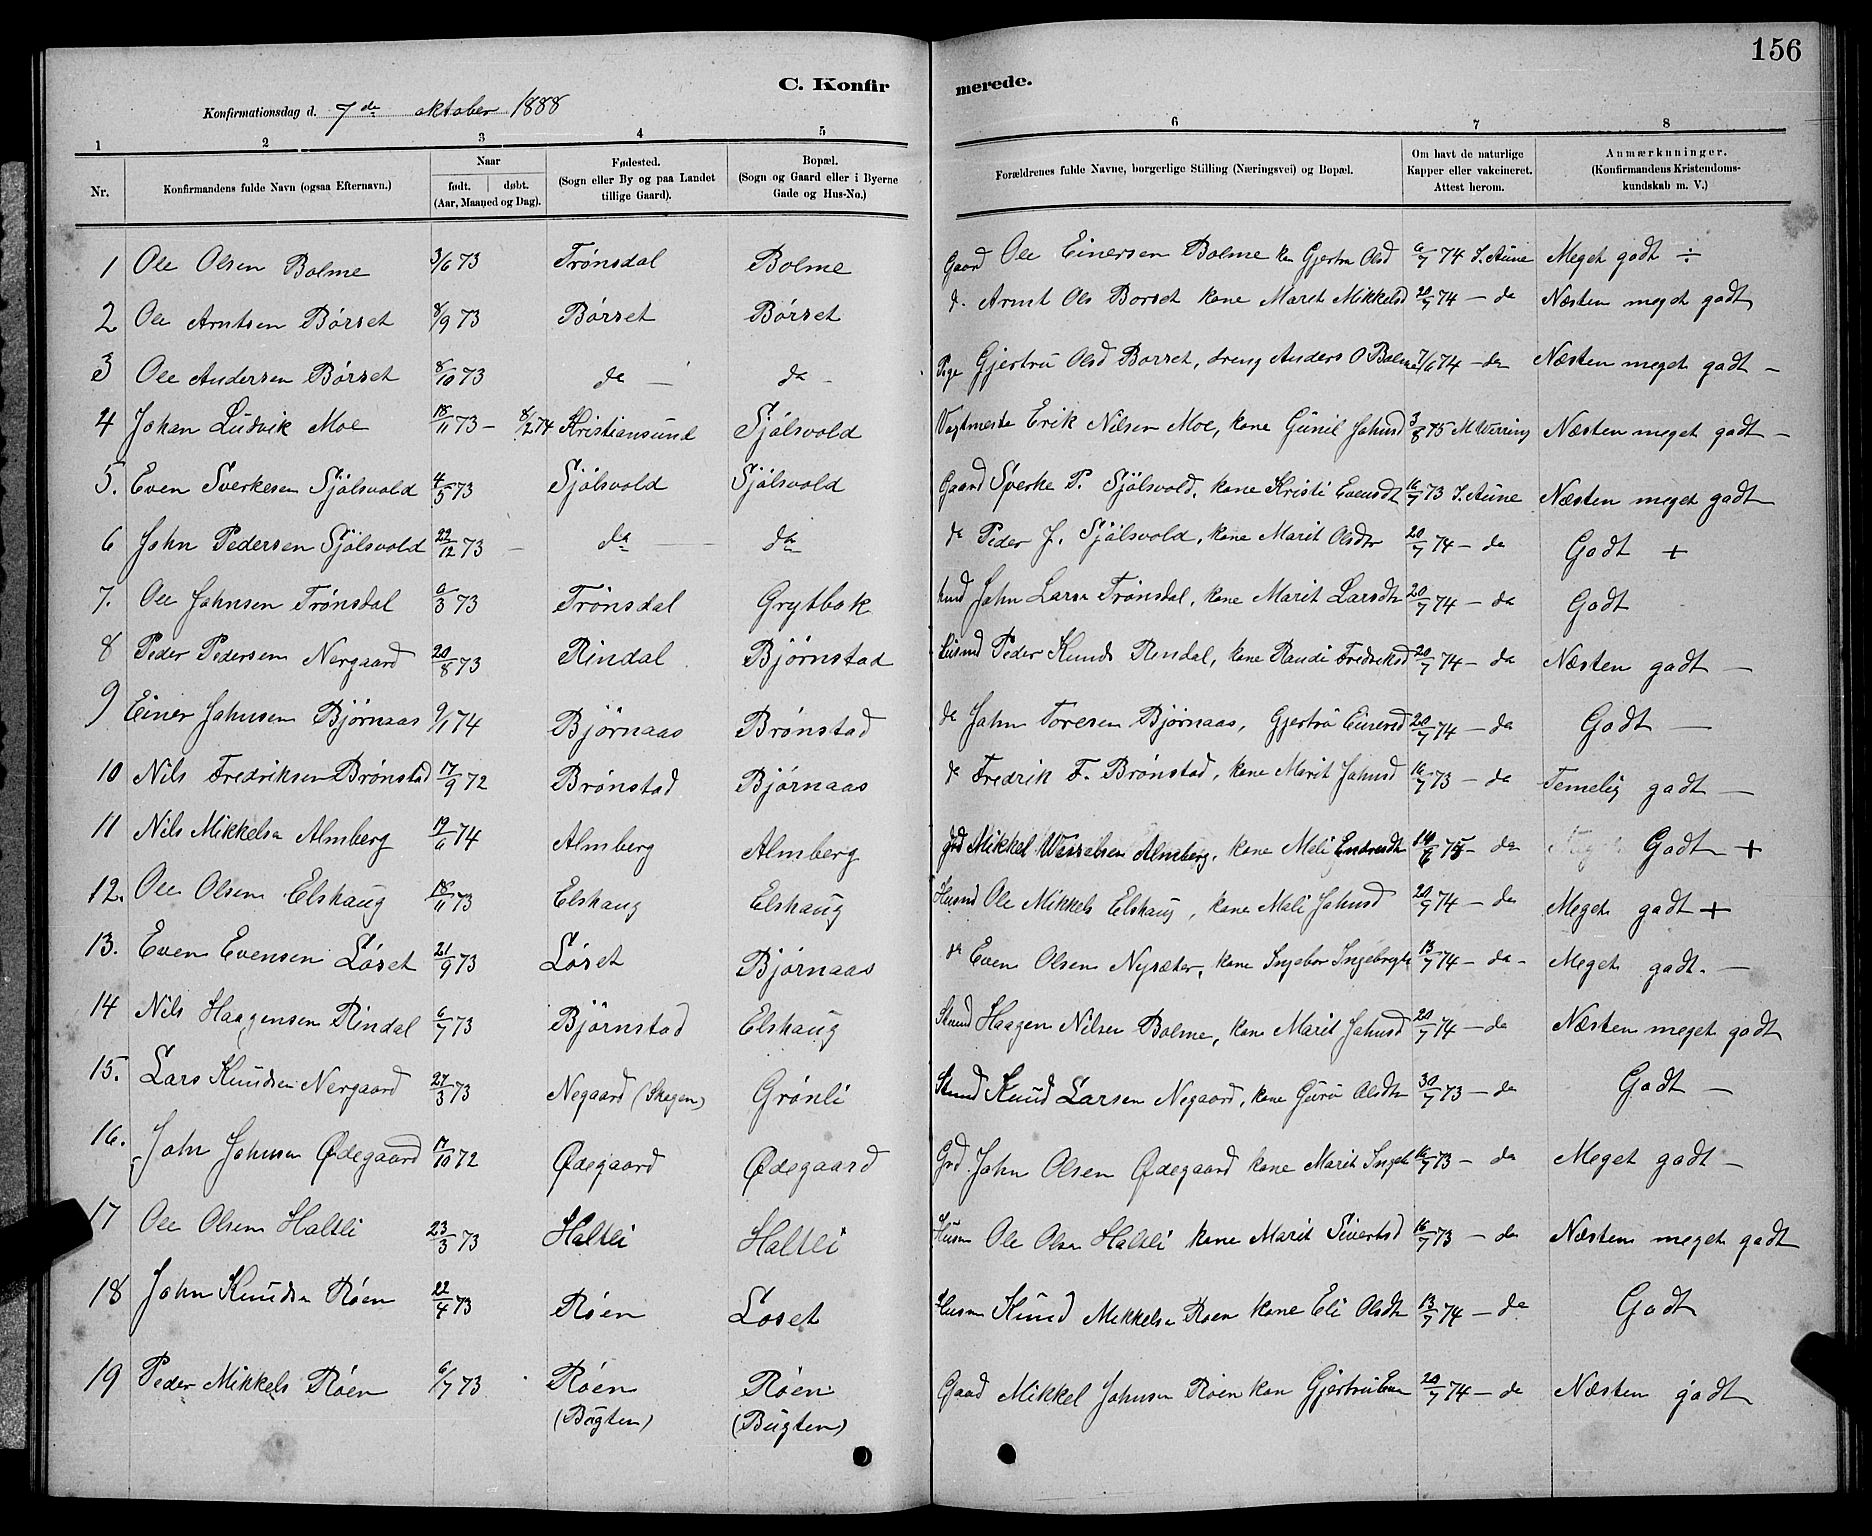 156
C. Konfirmerede.
Konfirmationsdag d. 7de oktober 1888
1 2 3 4 5 6 7 8
Nr. Konfirmandens fulde Navn (ogsaa Efternavn.) Naar født. døbt. (Aar, Maaned og Dag). Fødested. (Sogn eller By og paa Landet tillige Gaard). Bopæl. (Sogn og Gaard eller i Byerne Gade og Hus-No.) Forældrenes fulde Navne, borgerlige Stilling (Næringsvei) og Bopæl. Om havt de naturlige Kapper eller vakcineret. Attest herom. Anmærkninger. (Konfirmandens Kristendomskundskab m. V.)
1 Ole Olsen Bolme 3/6 73 Trønsdal Bolme Gaard Ole Einersen Bolme kon Gjertru Olsd 6/7 74 I. Aune Meget godt ÷
2 Ole Arntsen Børset 8/9 73 Børset Børset d. Arnt Ols Børset kone Marit Mikkelsd 20/7 74 – do Næsten meget godt
3 Ole Andersen Børset 8/10 73 do – do – Pige Gjertru Olsd Børset, dreng Anders O Bolme 7/6 74 – do Næsten meget godt –
4 Johan Ludvik Moe 18/11 73 – 8/2 74 Kristiansund Sjölsvold Vagtmeste Erik Nilsen Moe, kone Gunil Johnsd 3/8 75 M Werring Næsten meget godt –
5. Even Sverkesen Sjölsvold 4/5 73 Sjölsvold Sjölsvold Gaard Sverke P. Sjölsvold, kone Kristi Evensdt 16/7 73 I. Aune Næsten meget godt
6 John Pedersen Sjölsvold 22/12 73 – do – do do Peder J. Sjölsvold, kone Marit Olsdtr 20/7 74 – do Godt +
7. Ole Johnsen Trønsdal 6/3 73 Trønsdal Grytbak John Larsn Trønsdal, kone Marit Larsdtr 20/7 74 – do Godt
8 Peder Pedersen Nergaard 20/8 73 Rindal Bjørnstad Husmd Peder Knuds Rindal, kone Randi Fredriksd 20/7 74 – do Næsten godt –
9 Einer Johnsen Bjørnaas 9/1 74 Bjørnaas Brønstad do John Toresen Bjørnaas, Gjertru Einersd 20/7 74 – do Godt –
10 Nils Fredriksen Brønstad 17/9 72 Brønstad Bjørnaas do Fredrik F. Brønstad, kone Marit Johnsd 16/7 73 – do Temelig godt –
11 Nils Mikkelsn Almberg 19/6 74 Almberg Almberg grd Mikkel Wesselsen Almberg, kone Mali Endresdt 14/6 75 – do Godt +
12. Ole Olsen Elshaug 18/11 73 Elshaug Elshaug Husmd Ole Mikkels Elshaug, kone Mali Johnsd 20/9 74 – do Meget godt +
13. Even Evensen Løset 21/9 73 Løset Bjørnaas do Even Olsen Nysæter, kone Ingebor Ingebrgtn 13/7 74 – do – Meget godt. –
14 Nils Haagensen Rindal 6/7 73 Bjørnstad Elshaug Haagen Nilsen Bolme, kone Marit Johnsd 20/7 74 – do Næsten meget godt
15. Lars Knudsen Nergaard 27/3 73 Negaard (Skogen) Grönli Knud Larsen Negaard, kone Guru Olsdtr 30/7 73 – do Godt –
16. John Johnsen Ødegaard 17/10 72 Ødegaard Ødegaard Grd. John Olsen Ødegaard kone Marit Ingeb 16/7 73 – do Meget godt –
17 Ole Olsen Haltli 23/3 73 Haltli Haltli Husm Ole Olsn Haltli kone Marit Sivertsd 16/7 73 – do Næsten meget godt
18 John Knudsn Røen 22/4 73 Røen Løset Husm Knud Mikkelsn Røen kone Eli Olsdtr 13/7 74 – do Godt
19 Peder Mikkels Røen 6/7 73 Røen (Bugten) Røen (Bugten) Gaad Mikkel Johnsen Røen kon Gjertru 20/7 74 – do Næsten godt